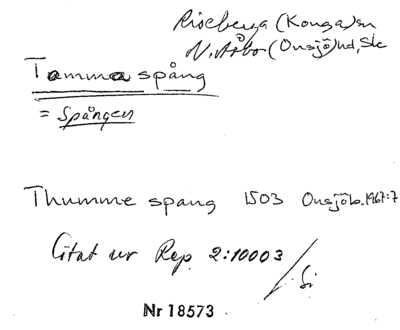 Riseberga (Konga) sn
N. Åsbo (Onsjö) hd, Sk
Tomma spång
= Spången
Thumme spang 1503 Onsjöb. 1967:7
Citat ur Rep. 2:10003 / Si
Nr 18573